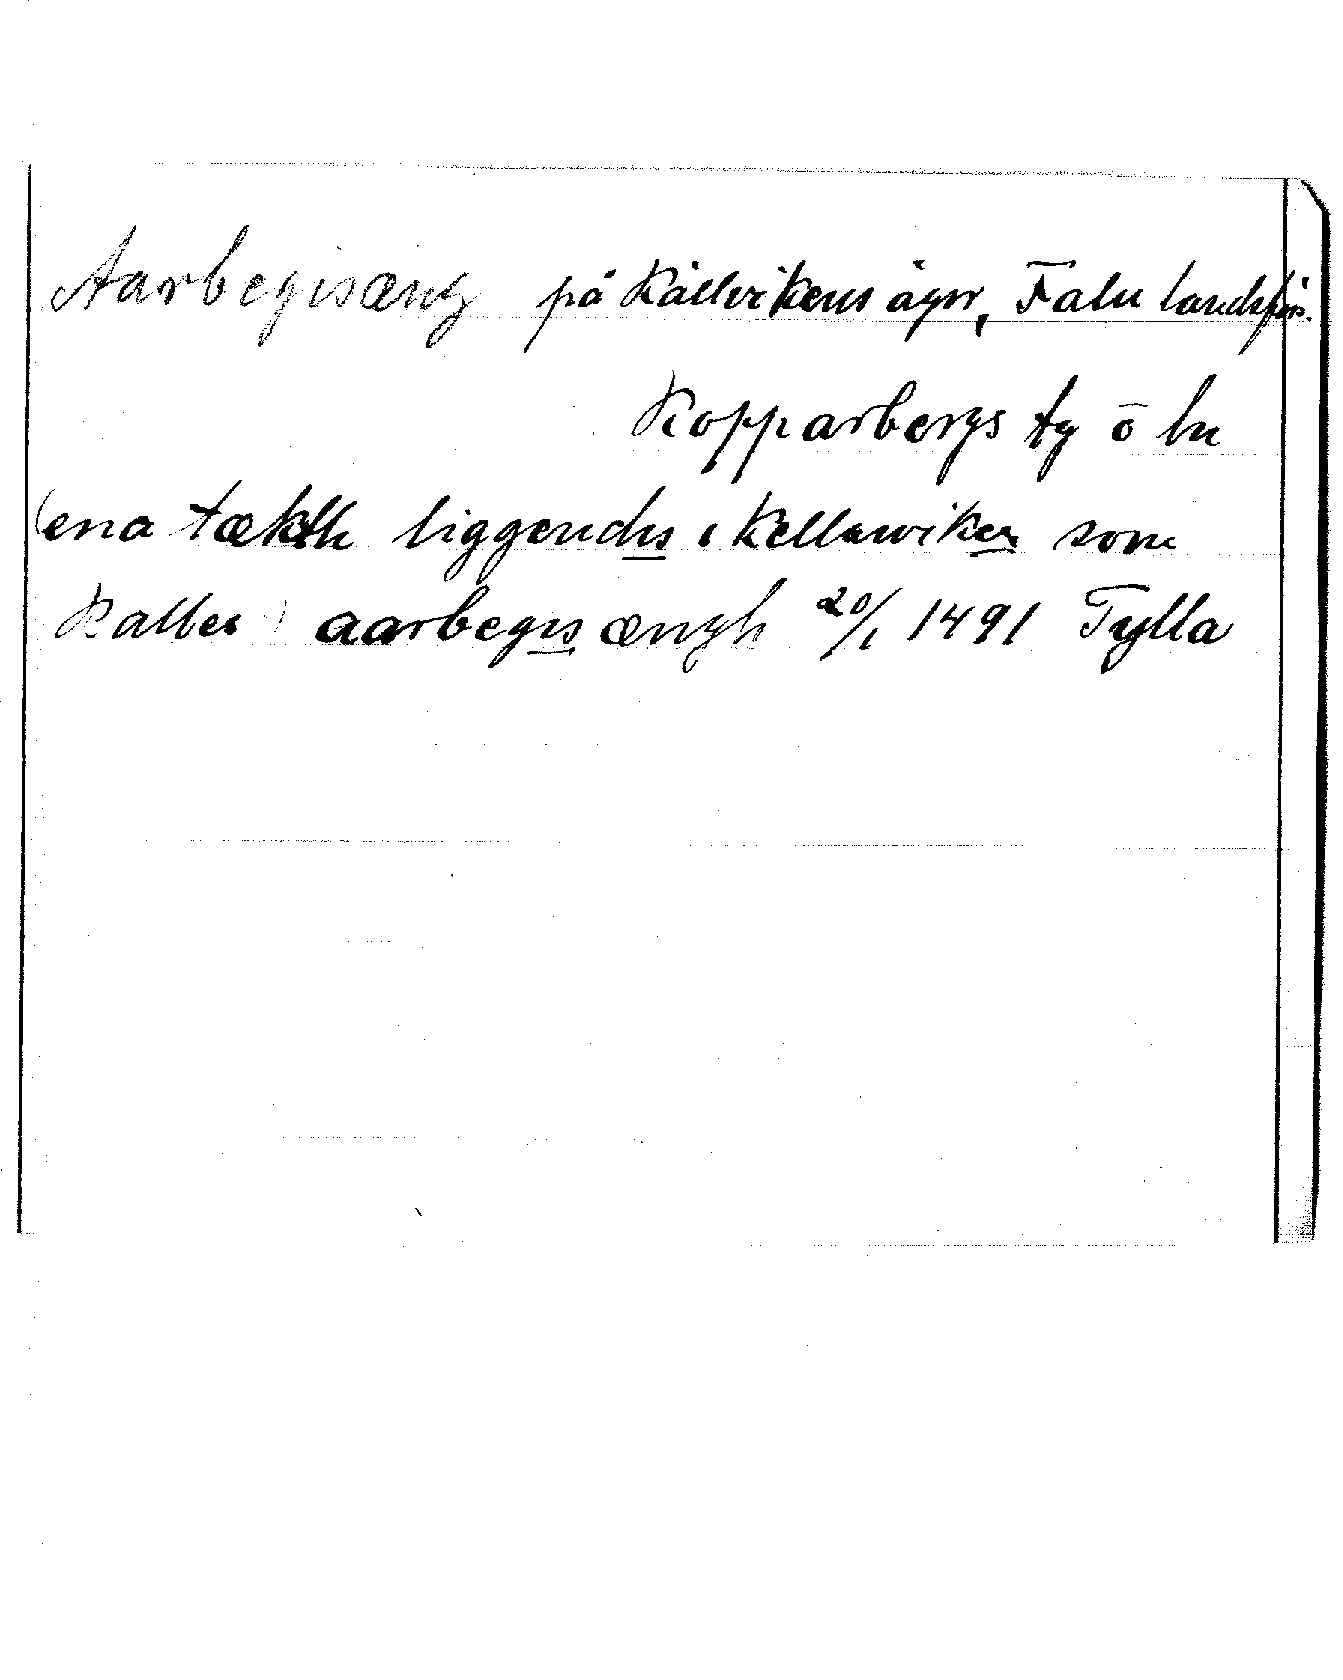 Aarbegisæng på Källvikens ägor, Falu landsförs.
Kopparbergs tg o ln
(ena tækth liggendis i Kellawiken som
Kallas) aarbegis ængh 20/1 1491 Tylla